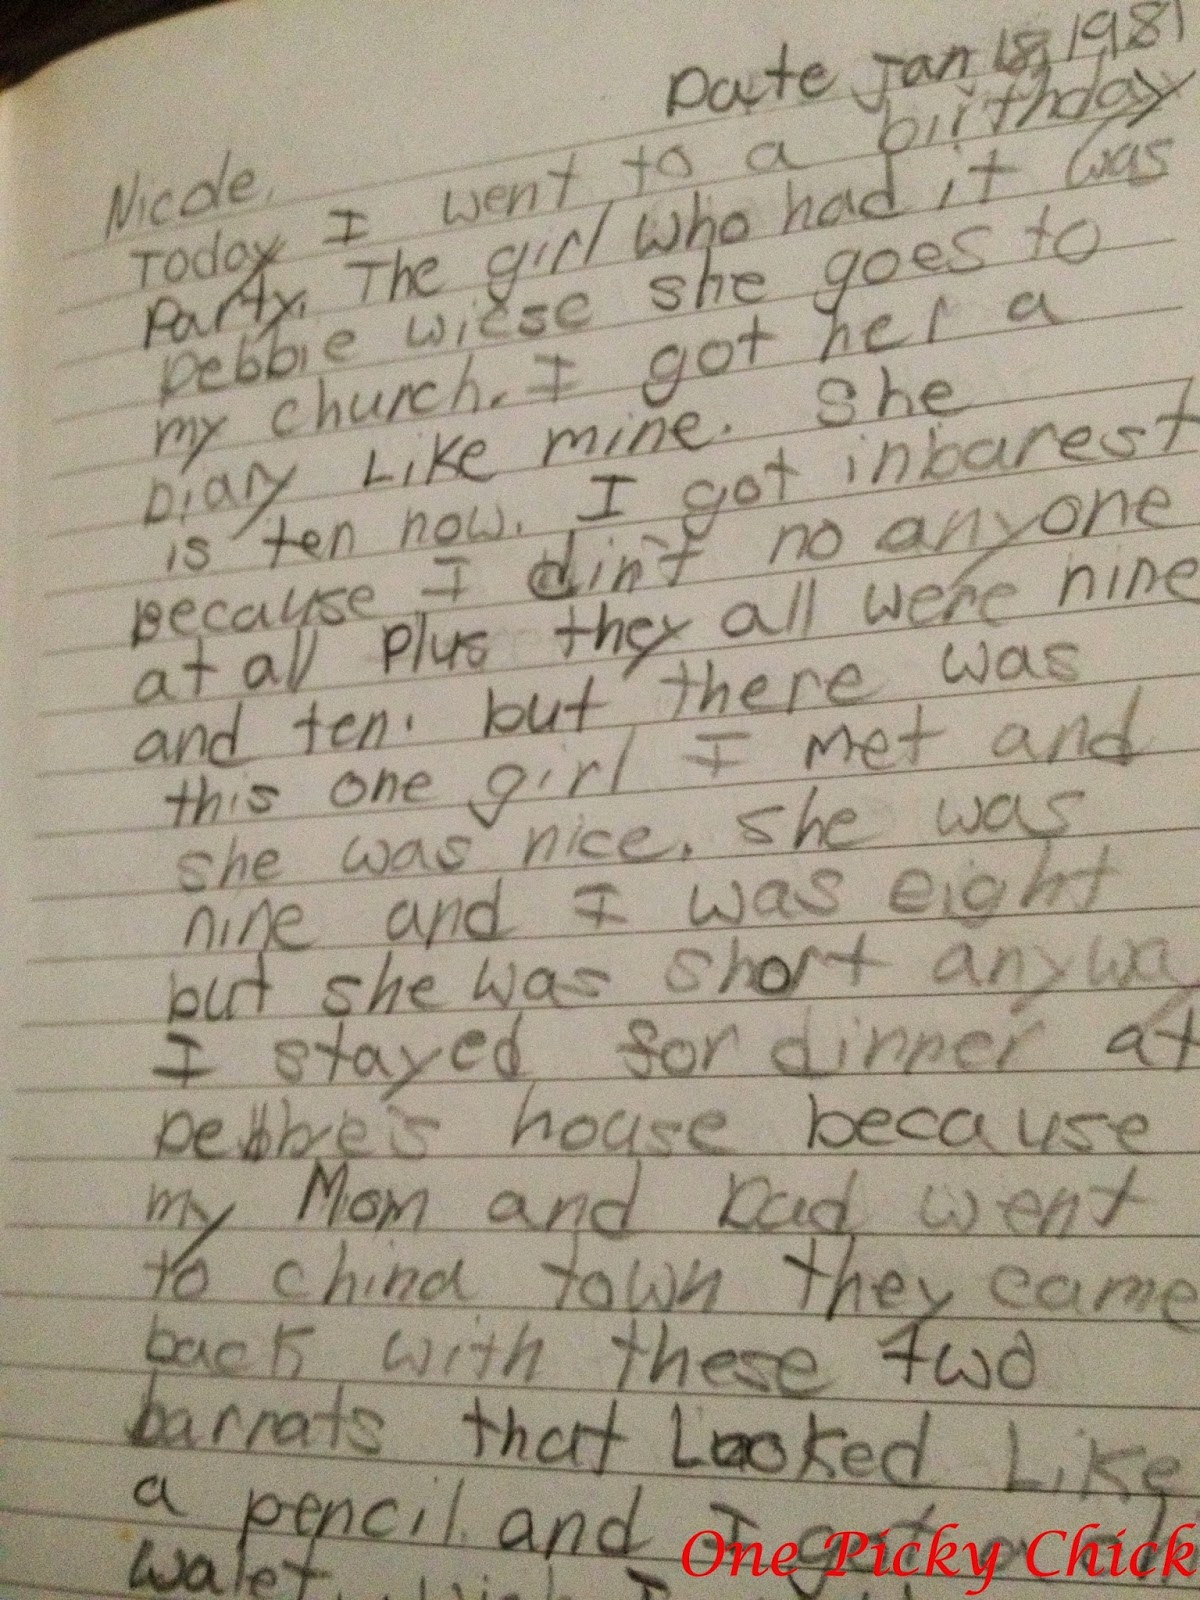 Date Jan 18, 1981
Nicole.
Today I went to a birthday
Party. The girl who had it was
Debbie Wiese she goes to
my church. I got her a
Diary Like mine. She
is ten now. I got inbarest
Because I din't no anyone
at all Plus they all were nine
and ten. but there was
this one girl I met and
she was nice. she was
nine and I was eight
but she was short anywa
I stayed for dinner at
Debbie's house because
my Mom and Dad went
to china town they came
back with these two
barrats that Looked Like
a pencil. and I got
walet.
One Picky Chick